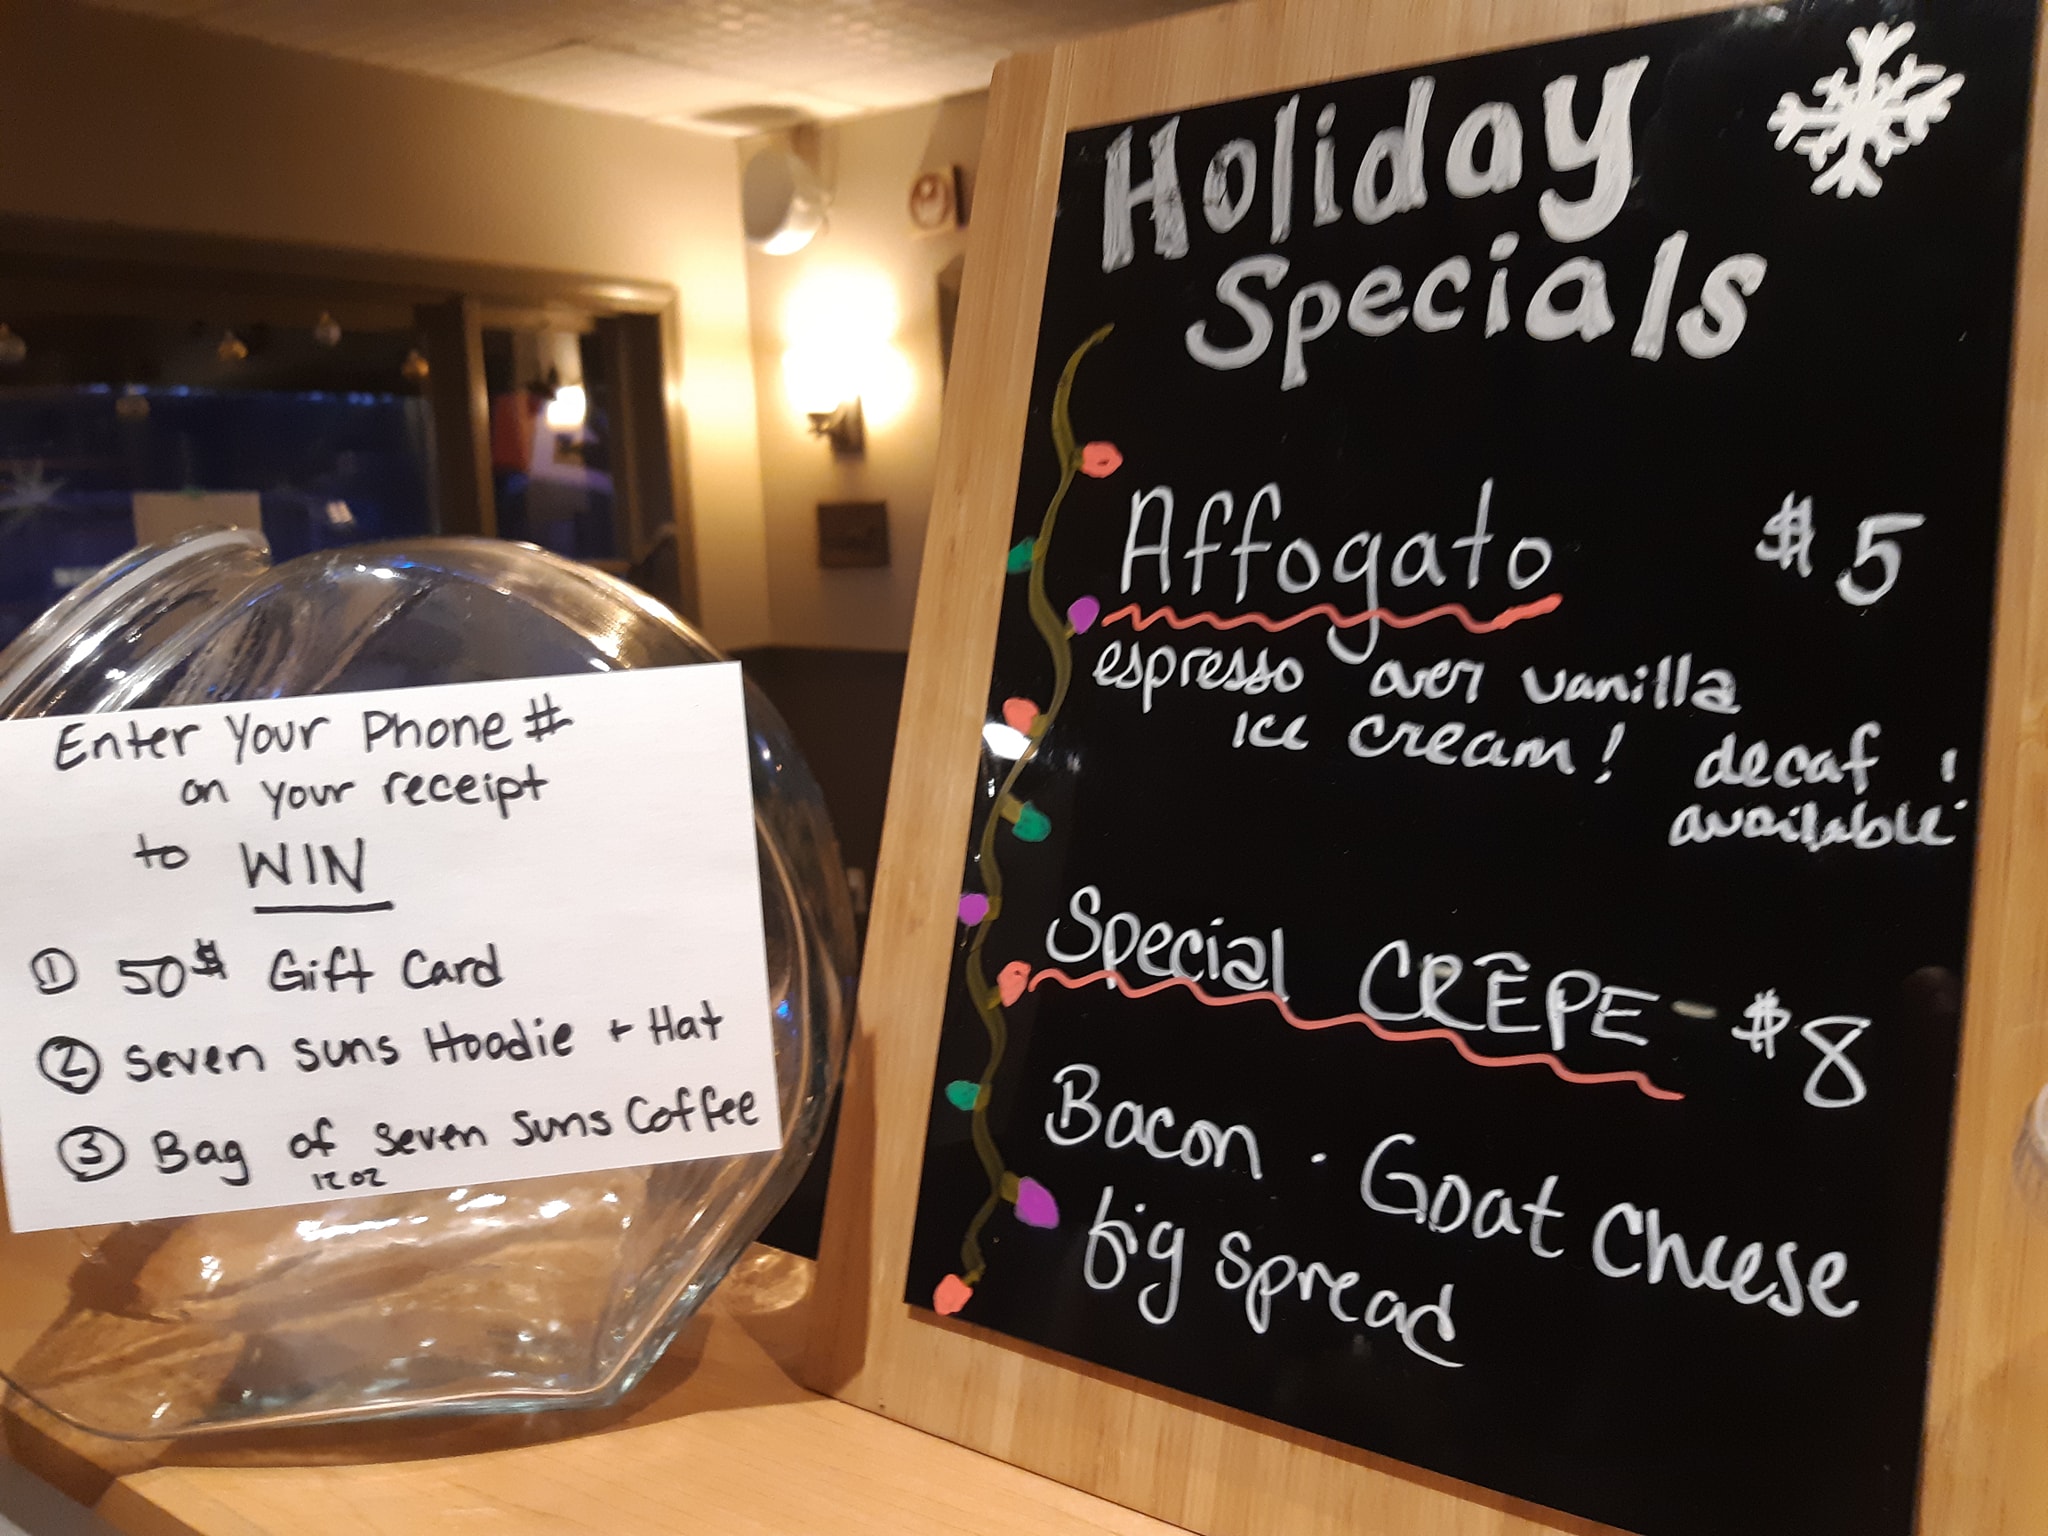 Enter Your Phone #
on your receipt
to WIN
① 50$ Gift Card
② Seven Suns Hoodie + Hat
③ Bag of Seven Suns Coffee
12 oz
Holiday
Specials
Affogato $5
espresso over vanilla
ice cream! decaf
available!
Special CRÊPE - $8
Bacon · Goat Cheese
fig spread